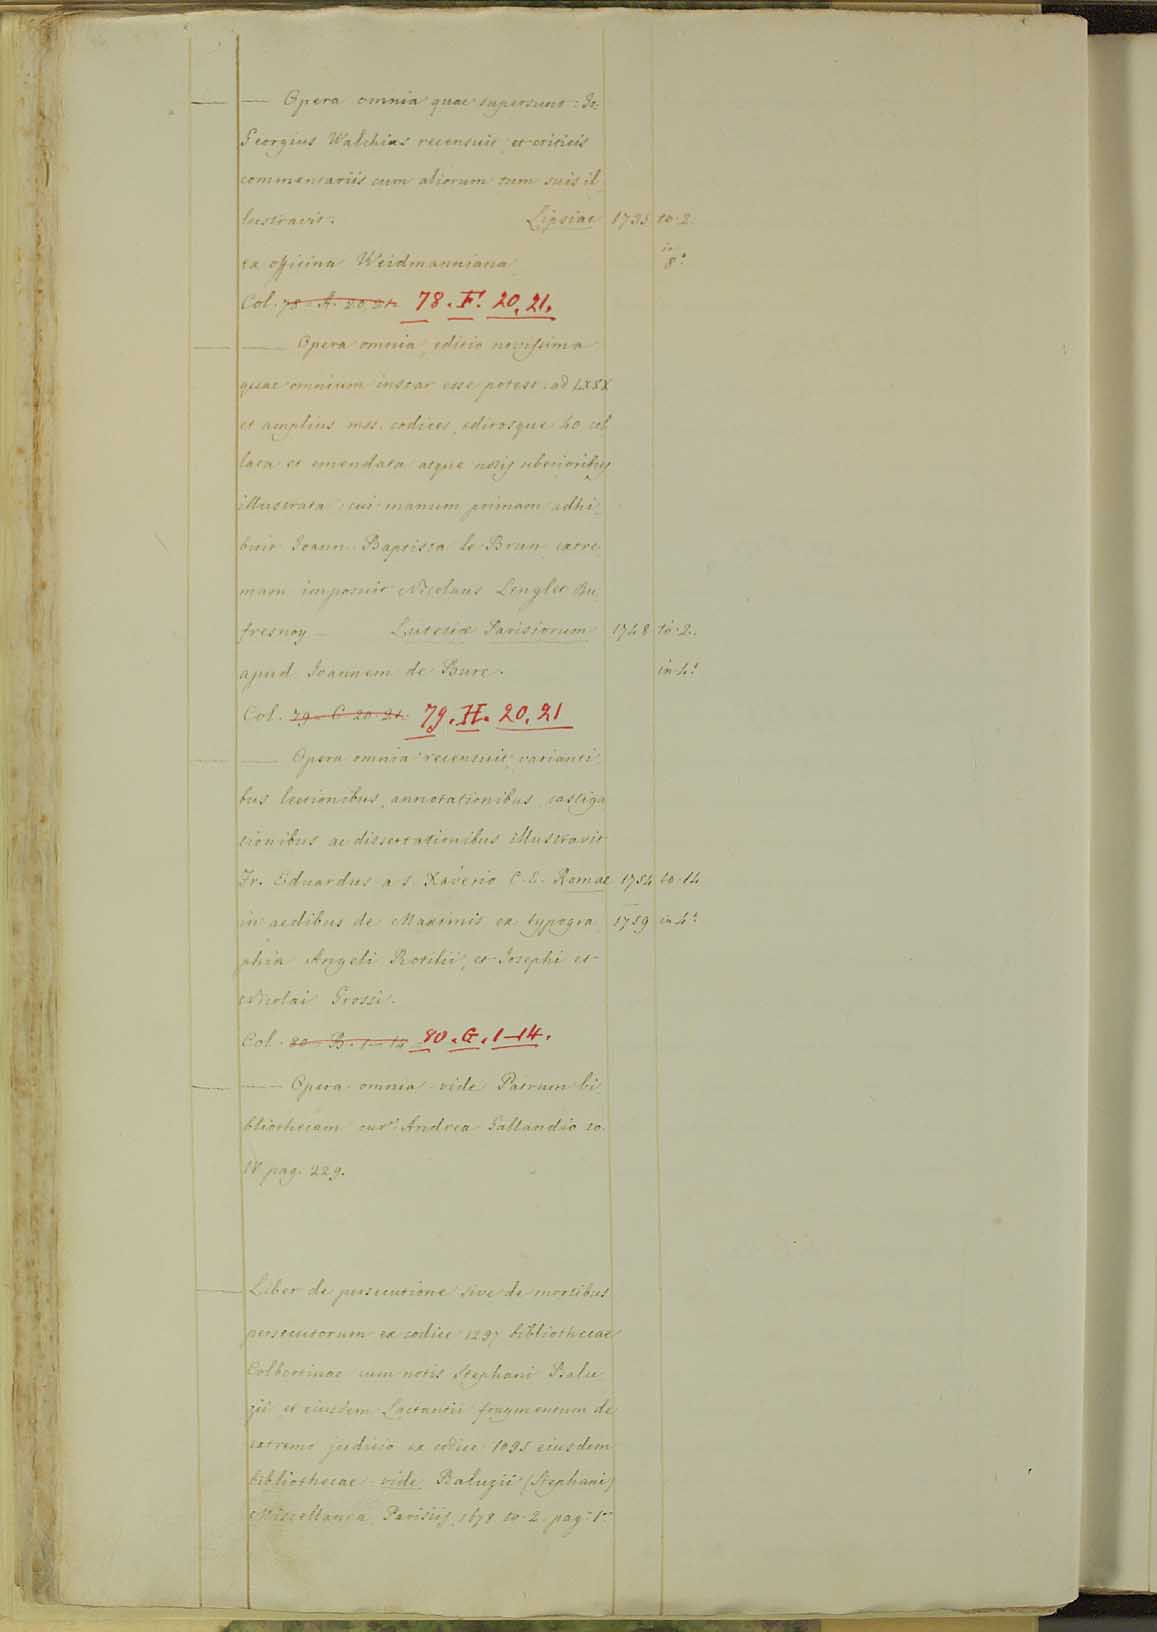 — — Opera omnia quae supersunt: Io:
Georgius Walchius recensuit, et criticis
commentariis cum aliorum tum suis il¬
lustravit. Lipsiae 1735 to. 2.
ex officina Weidmanniana in 8.º
Col. 78. A. 20. 21. 78. F. 20. 21.
— — Opera omnia, editio novissima
quae omnium instar esse potest. ad LXXX
et amplius mss. codices, editosque 40 col
lata et emendata atque notis uberioribus
illustrata, cui manum primam adhi¬
buit Joann. Baptista le Brun, extre
mam imposuit Nicolaus Lenglet Du
fresnoy — Lutetiae Parisiorum 1748 to. 2.
apud Joannem de Bure. in 4.º
Col. 79. C. 20. 21. 79. H. 20. 21
— — Opera omnia recensuit, varianti
bus lectionibus, annotationibus, castiga
tionibus ac dissertationibus illustravit
Fr. Eduardus a S. Xaverio C. E. Romae 1754 to. 14
in aedibus de Maximis ex typogra 1759 in 4.º
phia Angeli Rotilii, et Josephi et
Nicolai Grossi.
Col. 80. B. 1—14 80. G. 1—14.
— — Opera omnia vide Patrum bi
bliothecam cur. Andrea Gallandio to.
IV pag. 229.
— Liber de persecutione sive de mortibus
persecutorum ex codice 1297 bibliothecae
Colbertinae cum notis Stephani Balu
zii et eiusdem Lactantii fragmentum de
extremo judicio ex codice 1095 eiusdem
bibliothecae vide Baluzii (Stephani)
Miscellanea Parisiis, 1678 to. 2. pag. 1.